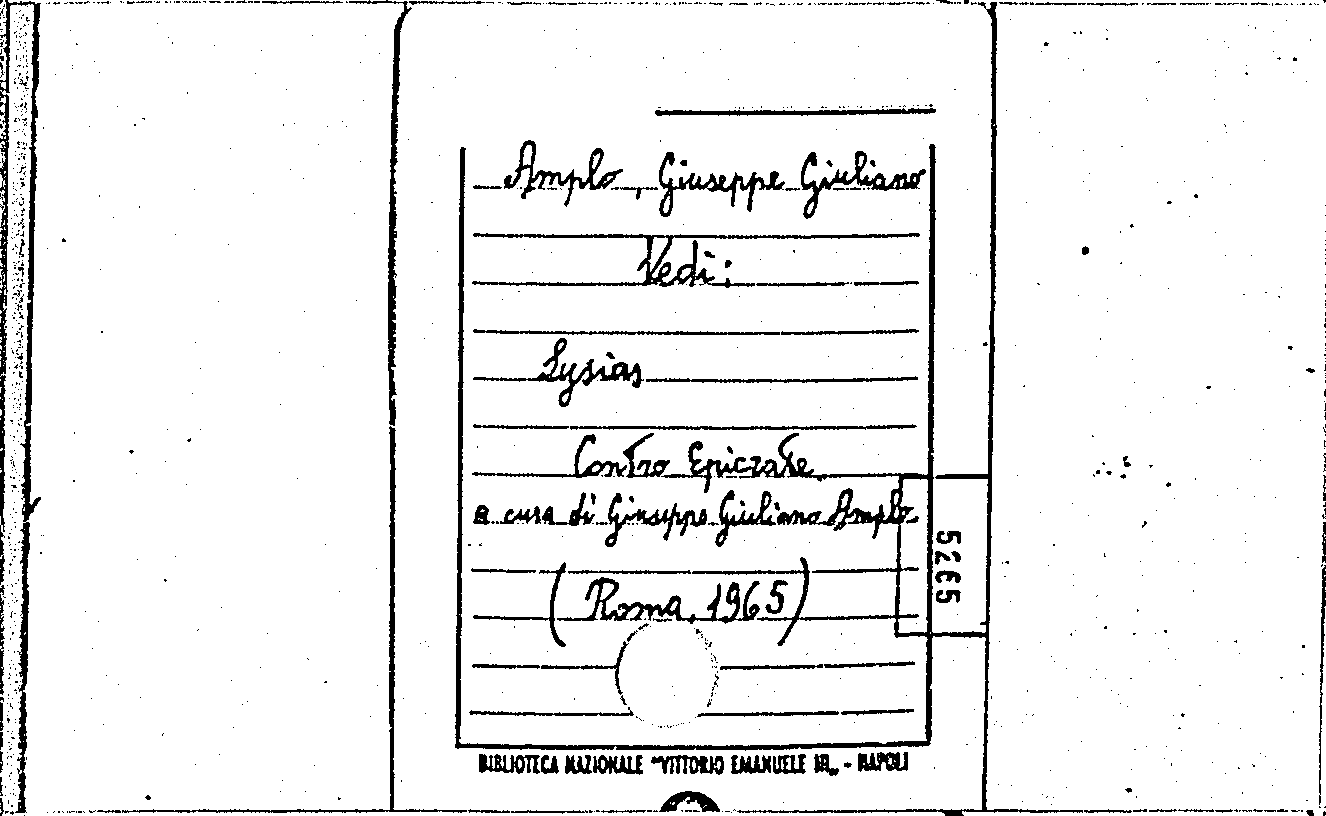 Amplo, Giuseppe Giuliano
Vedi:
Lysias
Contro Epicrate.
a cura di Giuseppe Giuliano Amplo.
(Roma, 1965)
5265
BIBLIOTECA NAZIONALE "VITTORIO EMANUELE III„ - NAPOLI